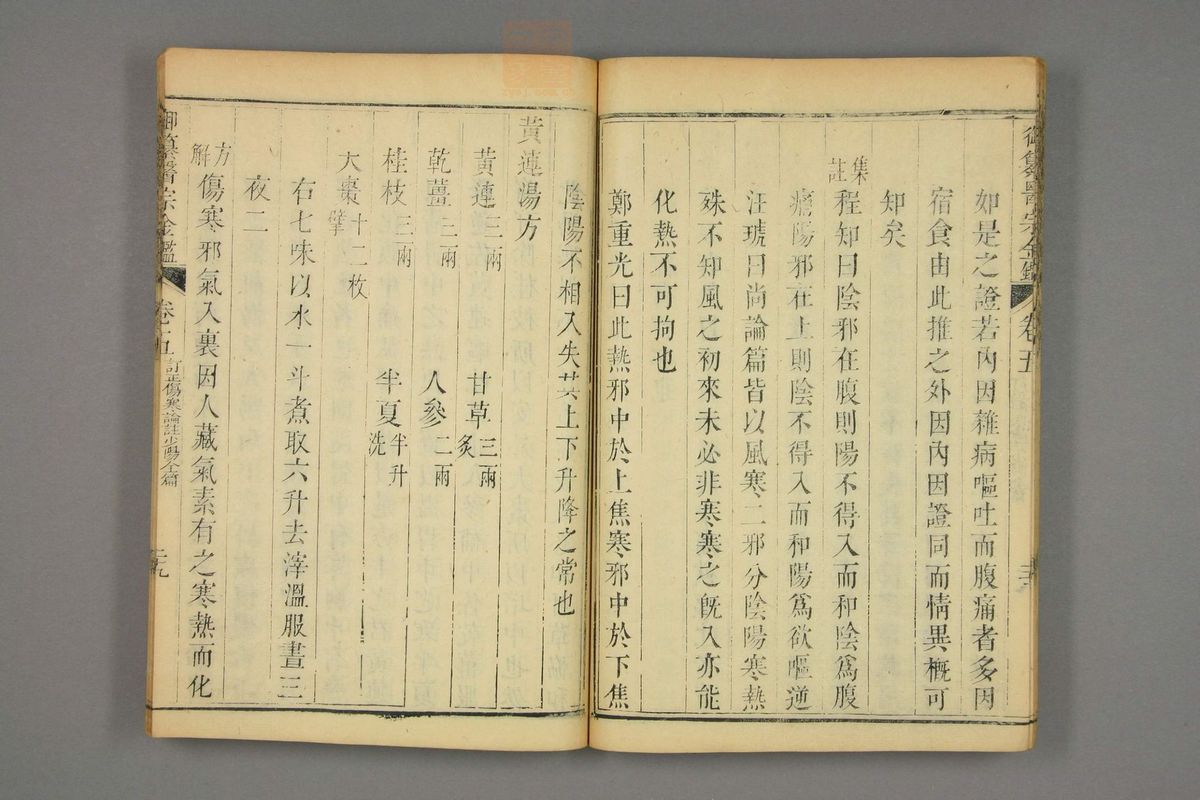 御纂醫宗金鑑 卷五
如是之證若內因雜病嘔吐而腹痛者多因
宿食由此推之外因內因證同而情異槪可
知矣
集註
程知曰陰邪在腹則陽不得入而和陰爲腹
痛陽邪在上則陰不得入而和陽爲欲嘔逆
汪琥曰尚論篇皆以風寒二邪分陰陽寒熱
殊不知風之初來未必非寒寒之旣入亦能
化熱不可拘也
鄭重光曰此熱邪中於上焦寒邪中於下焦
陰陽不相入失其上下升降之常也
黃連湯方
黃連三兩 甘草三兩炙
乾薑三兩 人參二兩
桂枝三兩 半夏半升洗
大棗十二枚擘
右七味以水一斗煮取六升去滓溫服晝三
夜二
方解
傷寒邪氣入裏因人藏氣素有之寒熱而化
御纂醫宗金鑑 卷五 訂正傷寒論註少陽全篇 二十九